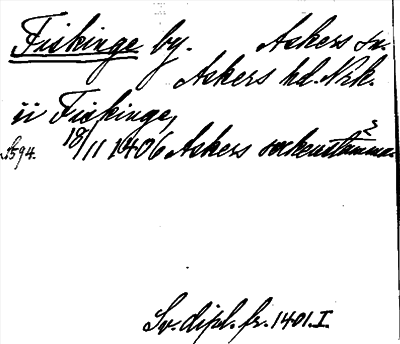 Fiskinge by. Askers sn.
Askers hd. Nrk.
ij Fiskinge,
s. 594. 18/11 1406 Askers sockenstämma.
Sv. dipl. fr. 1401. I.